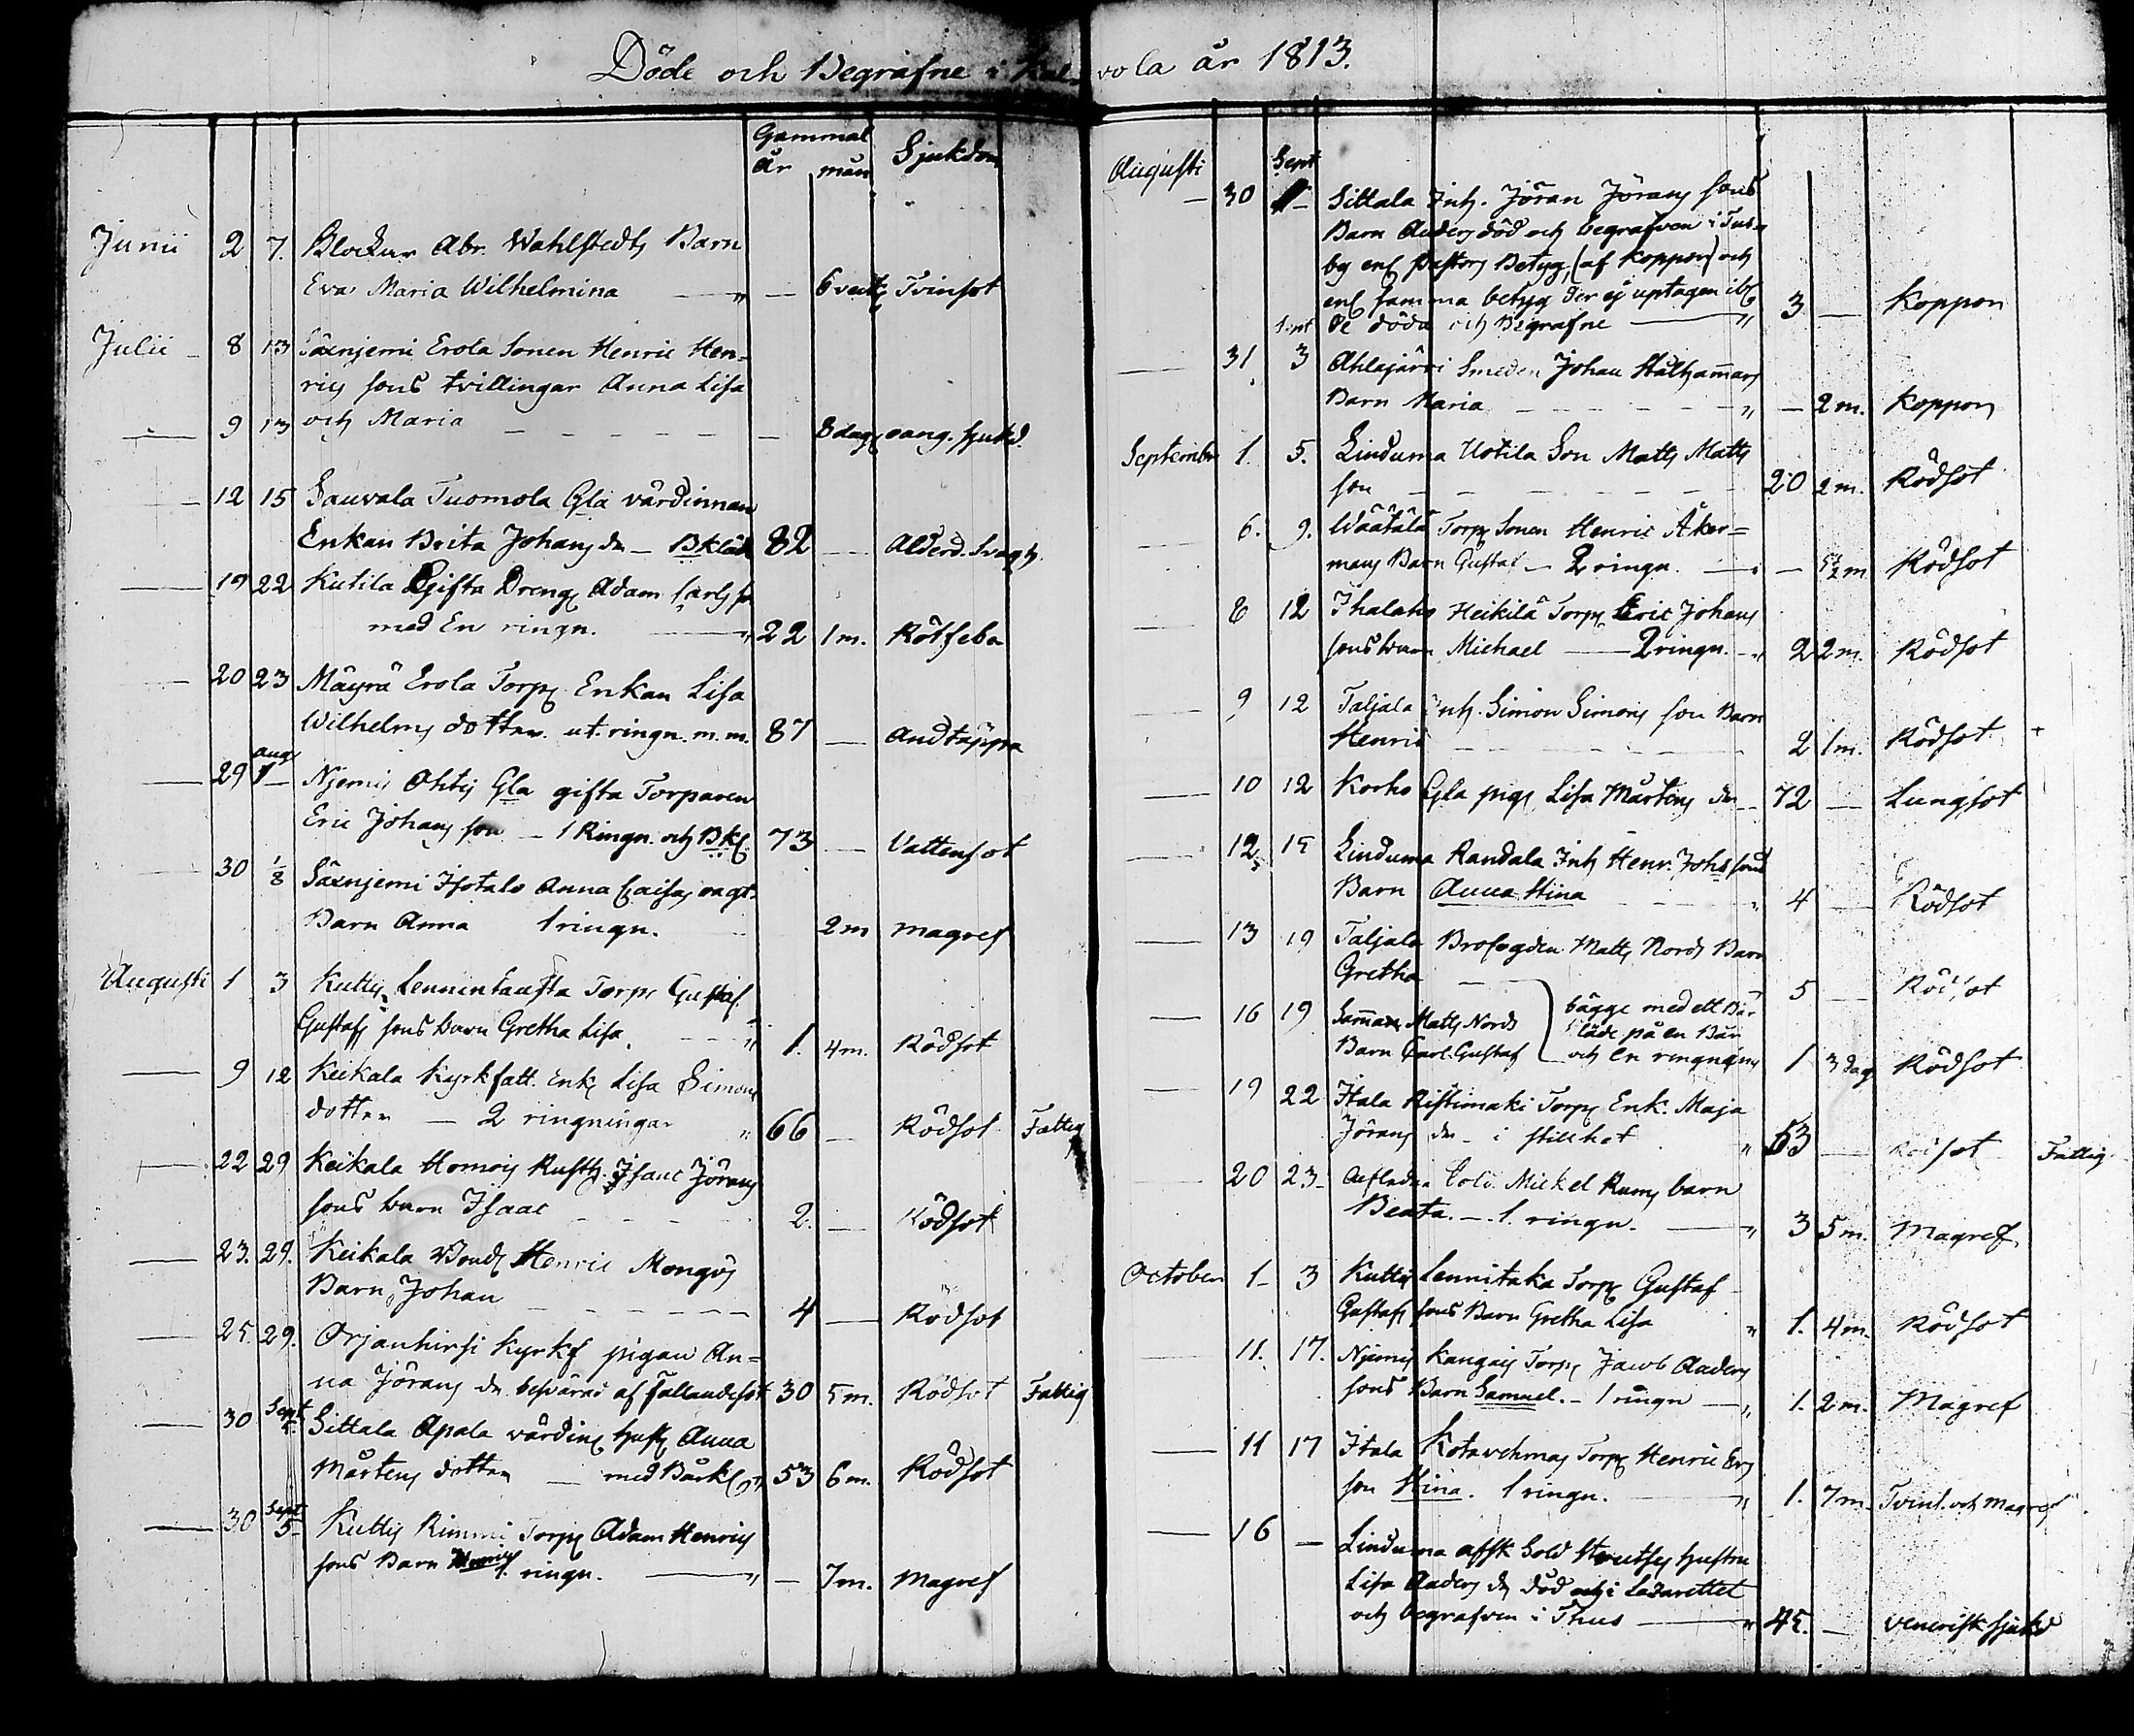 Döde och Begrafne i Kal- vola år 1813.
Gammal
år mån Sjukdom
Junii 2 7. Klockar Abr. Wahlstedts Barn
Eva Maria Wilhelmina — " — 6 veck Tvinsot
Julii — 8 13 Säxnjemi Erola Sonen Henric Hen=
rics sons tvillingar Anna Lisa
— 9 13 och Maria — 8 dag oang. sjukd.
— 12 15 Sauvala Tuomola Gla värdinnan
Enkan Brita Johans dr — Bkläde 82 — Alderd. Svagh.
— 19 22 Kutila Ogifta Dreng Adam Carls sn
med En ringn. — " 22 1 m. Rötfeber
— 20 23 Mäyrä Erola Torp. Enkan Lisa
Wilhelms dotter ut. ringn. m. m. 87 — Andtäppa
aug
— 29 1 Njemis Ohtis Gla gifta Torparen
Eric Johans son — 1 Ringn. och Bkl. 73 — Vattensot
— 30 1/8 Säxnjemi Isotalo Anna Caisas oägt.
Barn Anna 1 ringn. 2 m magref
Augusti 1 3 Kuttis Lennintausta Torp. Gustaf
Gustafs sons barn Gretha Lisa " 1. 4 m. Rödsot
— 9 12 Keikala Kyrkfatt. Enk. Lisa Simons
dotter — 2 ringningar " 66 — Rödsot Fattig
— 22 29 Keikala Homois Rusth. Isaac Jörans
sons barn Isaac 2. — Rödsot
— 23. 29. Keikala Bond. Henric Mongös
Barn Johan 4 — Rödsot
— 25. 29. Orjanhirsi Kyrkf pigan An=
na Jörans dr besvärad af fallandesot 30 5 m. Rödsot Fattig
Sept
— 30 Sittala Apala värdin. hust. Anna
Mårtens dotter — med Bårkl. " 53 6 m. Rödsot
Sept
— 30 5 Kuttis Rimmi Torp. Adam Henrics
sons Barn Henric 1. ringn. — " — 7 m. Magref
Augusti Sept
— 30 1 — Sittala Inh. Jöran Jörans sons
Barn Anders död och begrafven i Tus-
by enl Pastors Betyg, (af koppor) och
enl samma betyg der ej uptagen ibl
de döda och Begrafne — " 3 — Koppor
Sept
— 31 3 Ahlajärvi Smeden Johan Stålhamars
Barn Maria — " — 2 m. Koppor
September 1. 5. Linduma Uotila Son Matts Matts
son — 20 2 m. Rödsot
— 6. 9. Wäätälä Torp. Sonen Henric Åker=
mans Barn Gustaf — 2 ringn. — — 5 1/2 m Rödsot
— 8 12 Ihalaho Heikilä Torp. Eric Johans
sons barn Michael — 2 ringn. — " 2 2 m. Rödsot
— 9 12 Taljala Inh. Simon Simons son Barn
Henric 2 1 m. Rödsot
— 10 12 Korho Gla pig. Lisa Mårtens dr — 72 — Lungsot
— 12 15 Linduma Randala Inh Henr. Johs sons
Barn Anna Stina " 4 — Rödsot
— 13 19 Taljala Brofogden Matts Nords Barn
Gretha — 5 — Rödsot
— 16 19 Samma Matts Nords bägge med ett Bår
Barn Carl Gustaf kläde på en Bår
och en ringning 1 3 dag Rödsot
— 19 22 Itala Ristimaki Torp. Enk. Maja
Jörans dr — i stillhet " 53 — Rödsot Fattig
— 20 23 — Afledne Sold. Mickel Rams barn
Beata. — 1. ringn. — " 3 5 m. Magref
October 1 — 3 Kuttis Lennitaka Torp. Gustaf
Gustafs sons Barn Gretha Lisa " 1. 4 m. Rödsot
— 11. 17. Njemis Kangais Torp. Jacob Anders
sons Barn Samuel. — 1 ringn — " 1. 2 m. Magref
— 11 17 Itala Torp. Henric Ers
son Stina. 1 ringn. — " 1. 7 m. Tvins. och magref
— 16 — Linduma afsk Sold hustru
Lisa Anders dr död i Lazarettet
och begrafven i Thus — " 45. — Venerisk sjukd